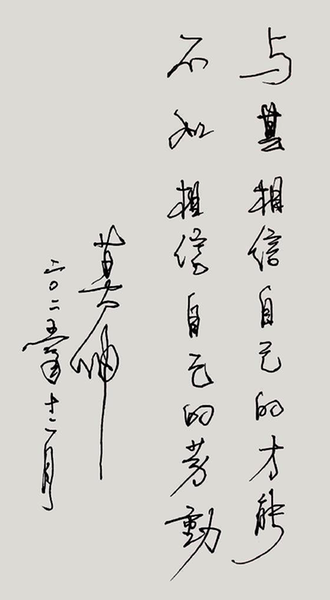 与其相信自己的才能
不如相信自己的劳動
莫伸
二〇二五年十二月